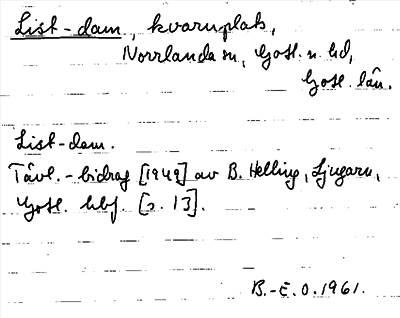 List-dam, kvarnplats,
Norrlanda sn, Gotl. n. hd,
Gotl. län.
List-dam.
Tävl.-bidrag [1949] av B. Helling, Ljugarn,
Gotl. hbf. [s. 13].
B.-E. O. 1961.